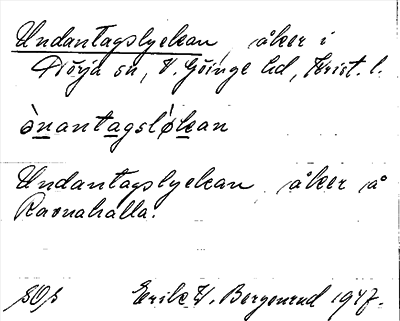 Undantagslyckan, åker i
Dörja sn, V. Göinge hd, Krist. l.
ònantagsløkan
Undantagslyckan, åker å
Ravnahalla.
Erik W. Bergenrud 1947.